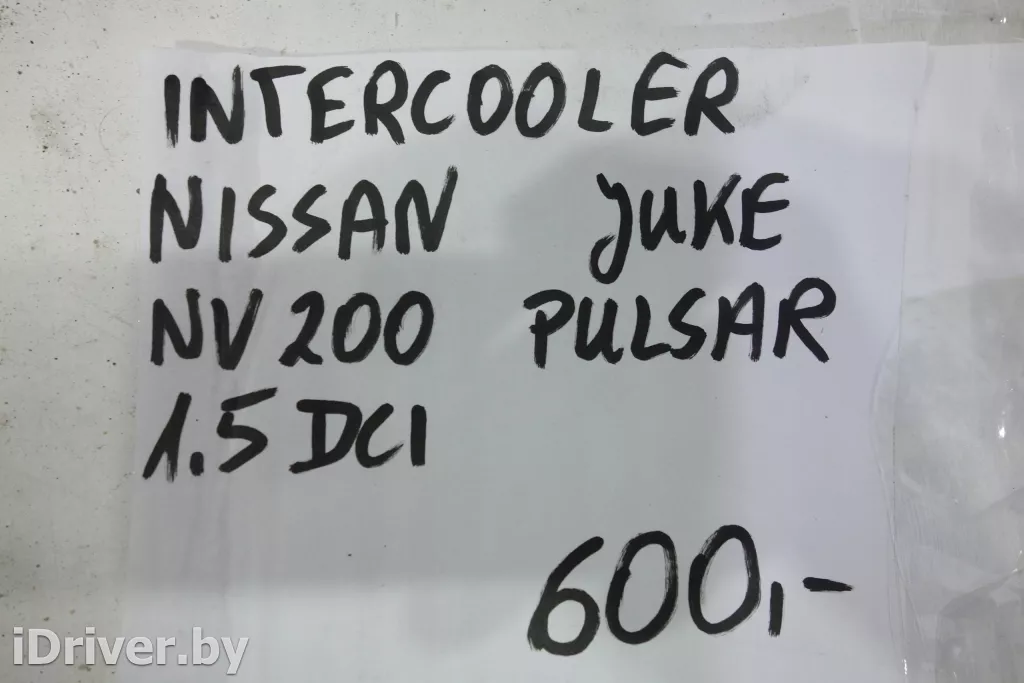 INTERCOOLER
NISSAN JUKE
NV200 PULSAR
1.5 DCI
600,-
iDriver.by